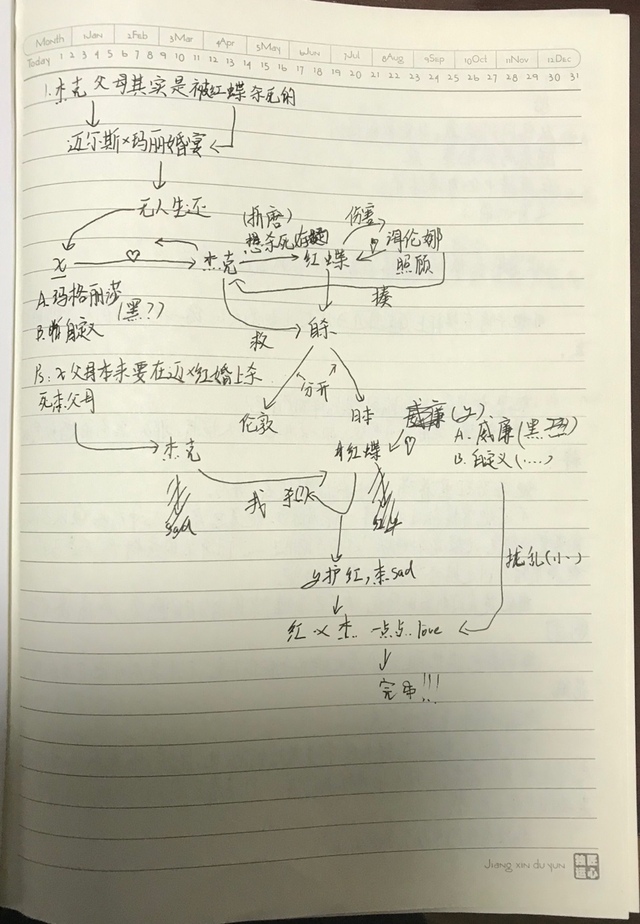 Month 1Jan 2Feb 3Mar 4Apr 5May 6Jun 7Jul 8Aug 9Sep 10Oct 11Nov 12Dec
Today 1 2 3 4 5 6 7 8 9 10 11 12 13 14 15 16 17 18 19 20 21 22 23 24 25 26 27 28 29 30 31
1. 杰克父母其实是被红蝶杀死的
迈尔斯×玛丽婚宴
无人生还
(撕磨) 伤害
想杀死
x 杰克 红蝶 照顾
A.玛格丽莎(黑??) 揍
B.自定义
救 自杀
Ps: x父母本来要在迈×红婚上杀
死杰父母
分开
伦敦 日本 威廉(y)
A.威廉(黑
B.自定义(....)
杰克 红蝶
找
sad
扰乱(小)
y护红,杰sad
红×杰 一点点love
完本!!!
Jiang xin du yun
独匠
运心